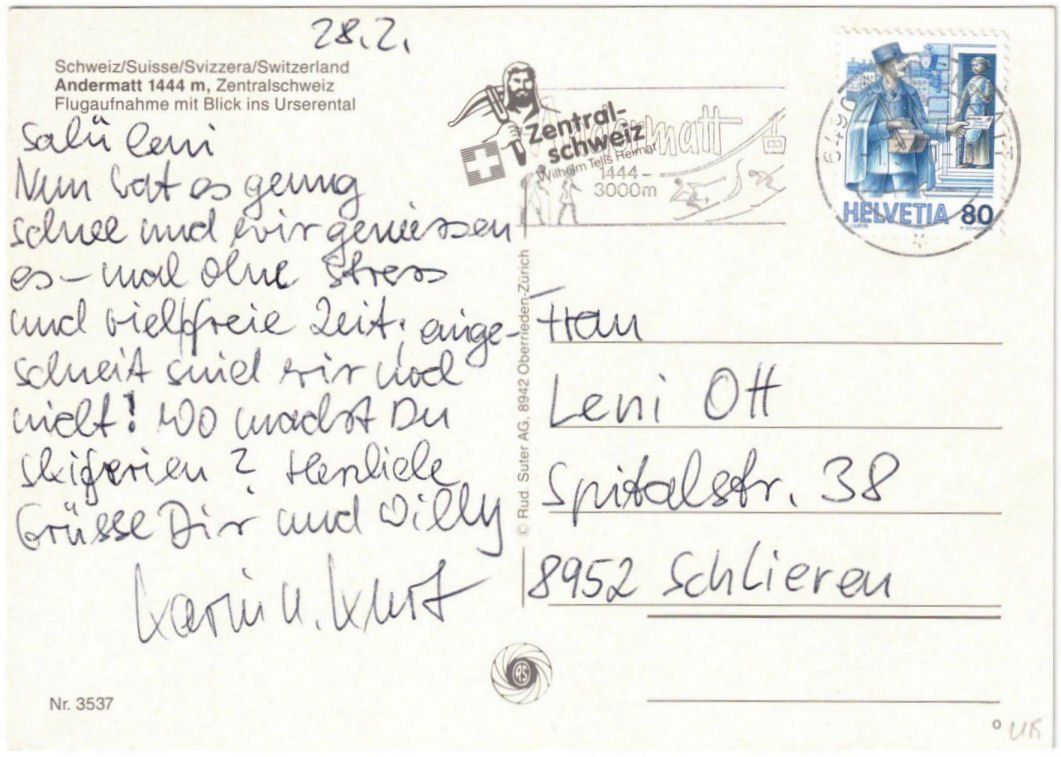 28.2.
Schweiz/Suisse/Svizzera/Switzerland
Andermatt 1444 m, Zentralschweiz
Flugaufnahme mit Blick ins Urserental
Salü Leni
Nun hat es genug
Schnee und wir geniessen
es – mal ohne Stress
und viel freie Zeit, einge-
schneit sind wir noch
nicht! Wo machst Du
Skiferien? Herzliche
Grüsse Dir und Willy
Karin u. Kurt
Nr. 3537
Zentral-
schweiz
Wilhelm Tells Heimat
Andermatt
1444 –
3000m
6490
HELVETIA 80
© Rud. Suter AG, 8942 Oberrieden-Zürich
Frau
Leni Ott
Spitalstr. 38
8952 Schlieren
RS